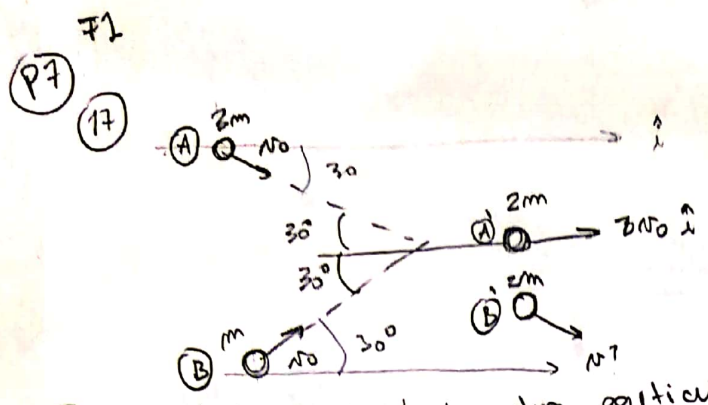 F1
P7
17
A 2m v0 30 î
30°
30°
A' 2m 3v0 î
B' 2m
v?
B m v0 30°